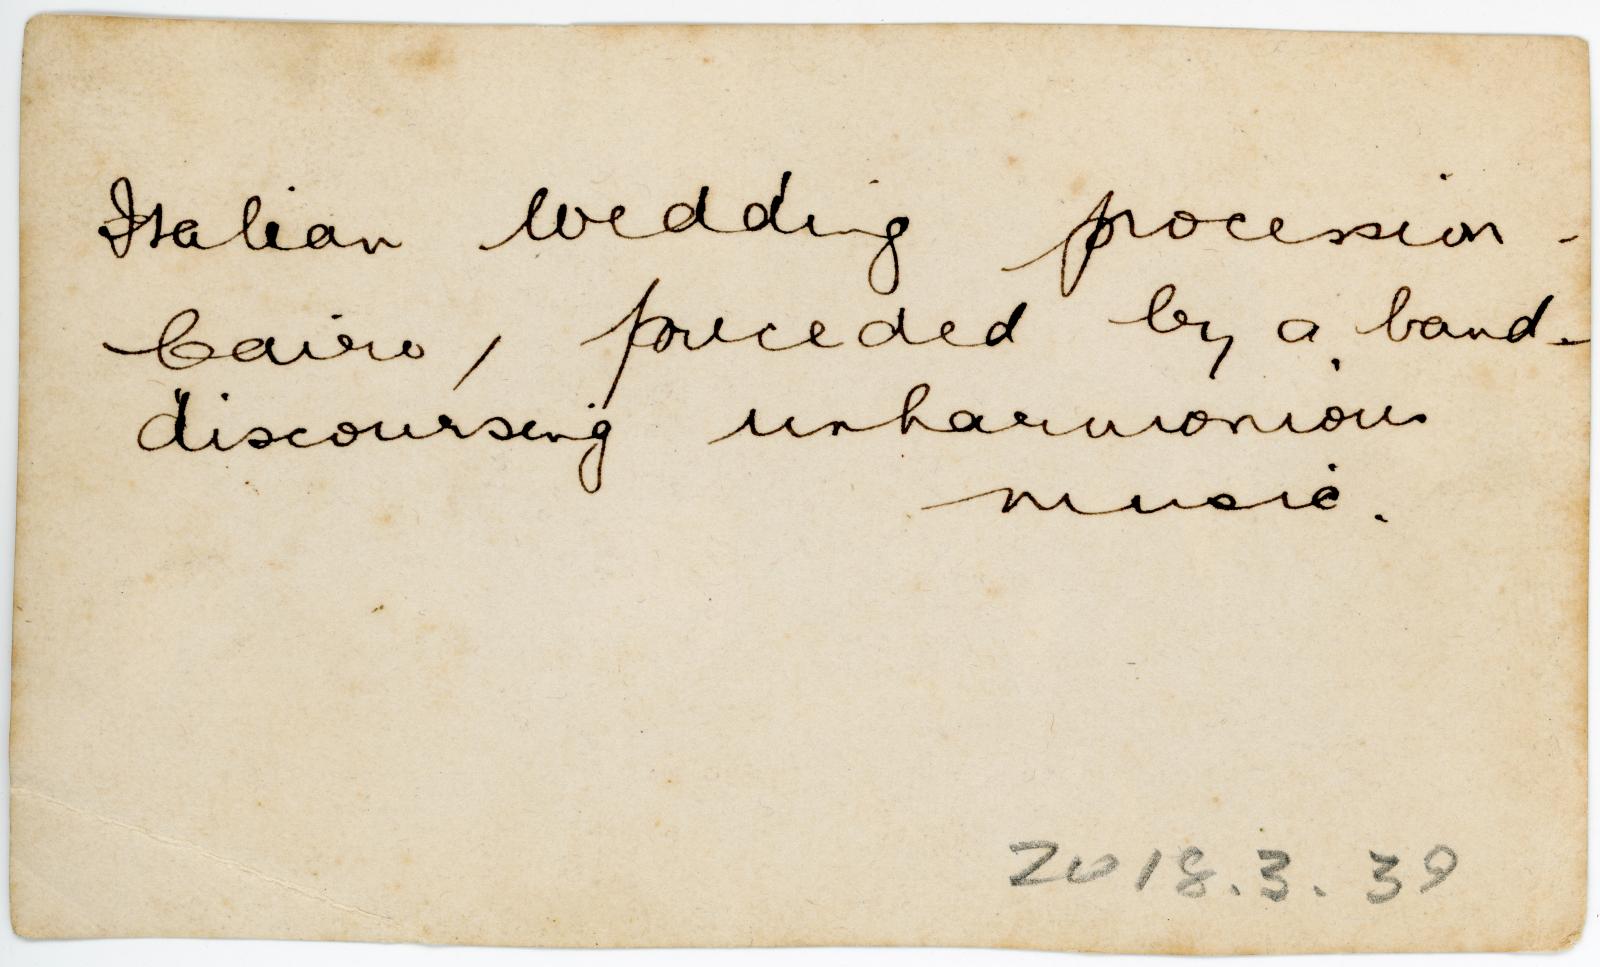 Italian wedding procession -
Cairo, preceded by a band -
discoursing unharmonious
music.
2018.3.39